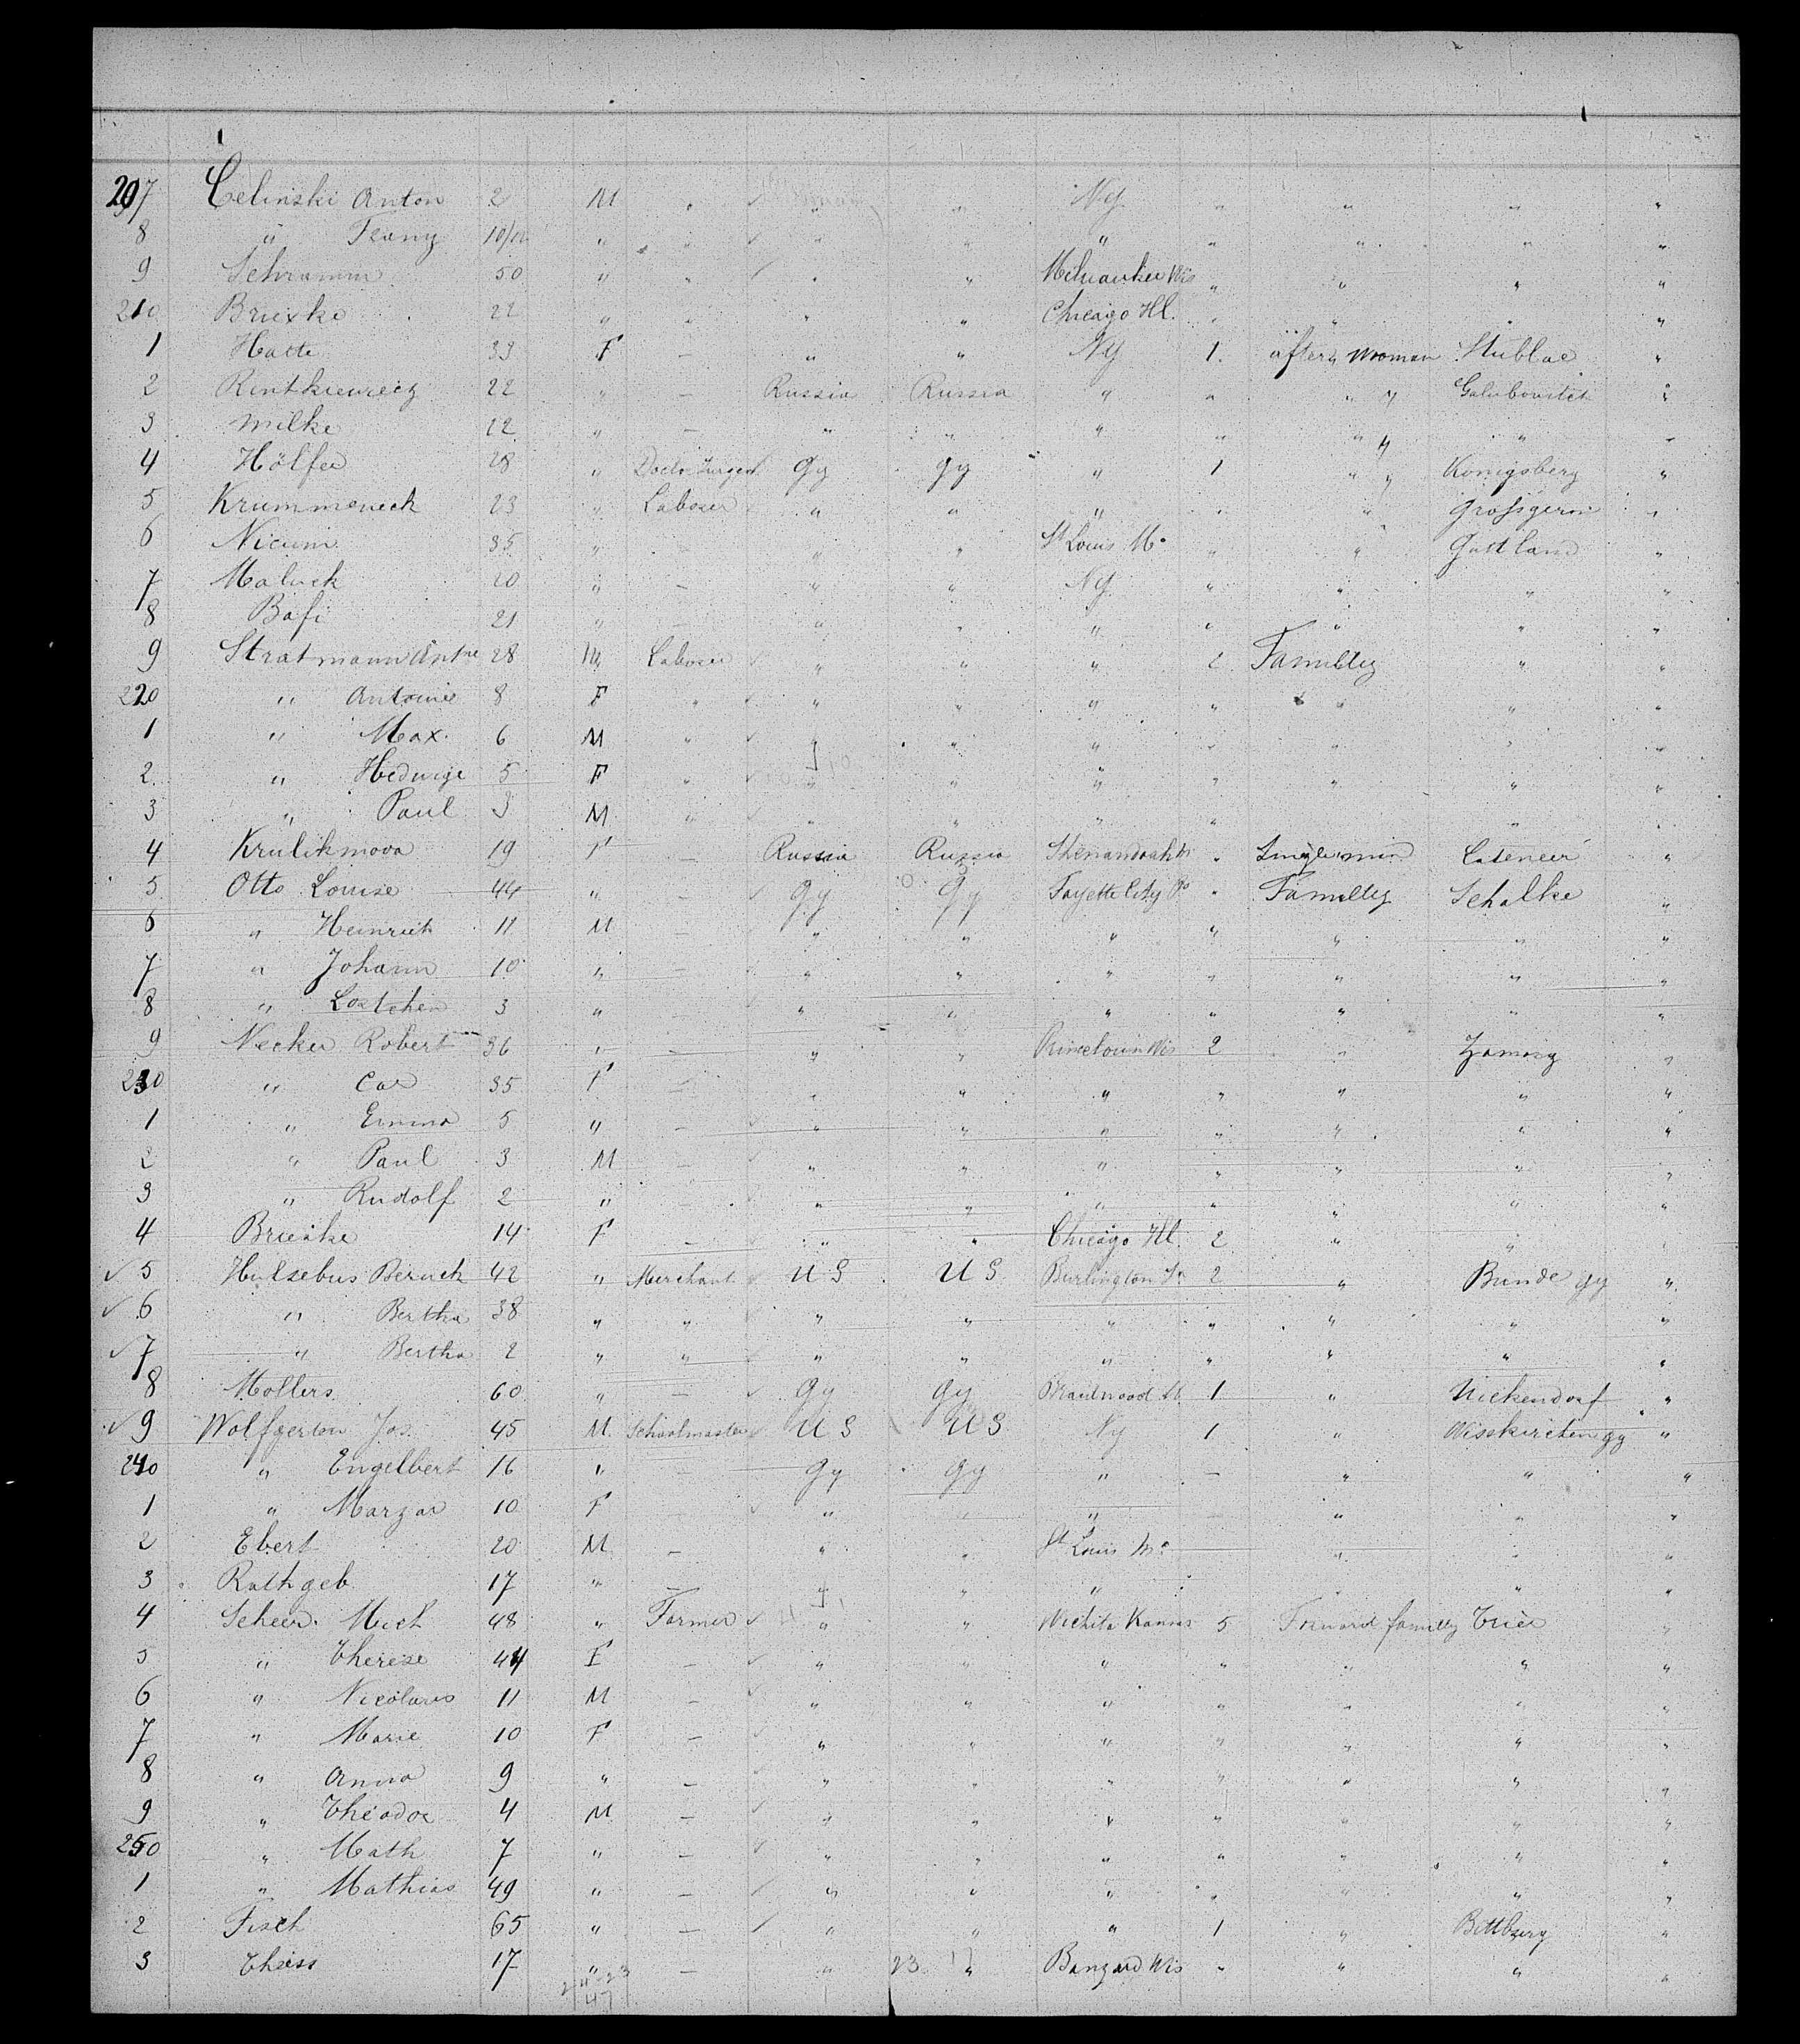 207 Celinski Anton 2 M " " " Ny " " " "
8 " Franz 10/12 " " " " " " " " "
9 Schramm 50 " " " " Milwaukee Wis " " " "
210 Brieske 22 " " " " Chicago Ill. " " " "
1 Hatte 33 F — " " Ny 1. after woman Stublac "
2 Rintkiewicz 22 " — Russia Russia " " " " Golubowitch "
3 Milke 22 " — " " " " " " " "
4 Hölfer 28 " Gy gy " 1 " " Konigsberg "
5 Krummeneck 23 " Laborer " " " " " Grossgerin "
6 Nicum 35 " " " St Louis Mo " " Gottland "
7 Maluck 20 " — " " Ny " " " "
8 Bafi 21 " — " " " " " " "
9 Stratmann Antne 28 M Laborer " " " 2 Familly " "
220 " Antonie 8 F " " " " " " " "
1 " Max 6 M " " " " " " " "
2 " Hedwige 5 F " " " " " " " "
3 " Paul 3 M " " " " " " "
4 Krulikmova 19 F — Russia Russia Shenandoah " "
5 Otto Louise 44 " — Gy Gy Fayette City Pa " Familly Schalke "
6 " Heinrich 11 M — " " " " " " "
7 " Johann 10 " — " " " " " " "
8 " Lottchen 3 " — " " " " " " "
9 Necker Robert 36 " — " " Wis 2 " "
230 " Car 35 F — " " " " " " "
1 " Emma 5 " — " " " " " " "
2 " Paul 3 M — " " " " " " "
3 " Rudolf 2 " — " " " " " " "
4 Brieske 14 F — " " Chicago Ill. 2 " " "
5 Hulsebus 42 " Merchant U S U S Burlington 2 " Bunde gy "
6 " Bertha 38 " " " " " " " " "
7 " Bertha 2 " " " " " " " " "
8 Mollers 60 " — Gy gy Braidwood Il. 1 " "
9 Jos. 45 M Schoolmaster U S U S Ny 1 " Wisskirchen gy "
240 " Engelbert 16 " — Gy Gy " — " " "
1 " Margar 10 F " " " " " "
2 Ebert 20 M — " " St Louis Mo " " "
3 Rathgeb 17 " — " " " " " "
4 Scheer Mich 48 " Farmer " " Wichita Kansas 5 familly Trier "
5 " Therese 44 F — " " " " " " "
6 " Nicolaus 11 M — " " " " " " "
7 " Marie 10 F — " " " " " " "
8 " Anna 9 " — " " " " " " "
9 " Theodor 4 M — " " " " " " "
250 " Math 7 " — " " " " " " "
1 " Mathias 49 " — " " " " " " "
2 Fisch 65 " — " " " 1 " Bittburg "
3 Theiss 17 " — " 23 " Wis " " " "
24-23
47